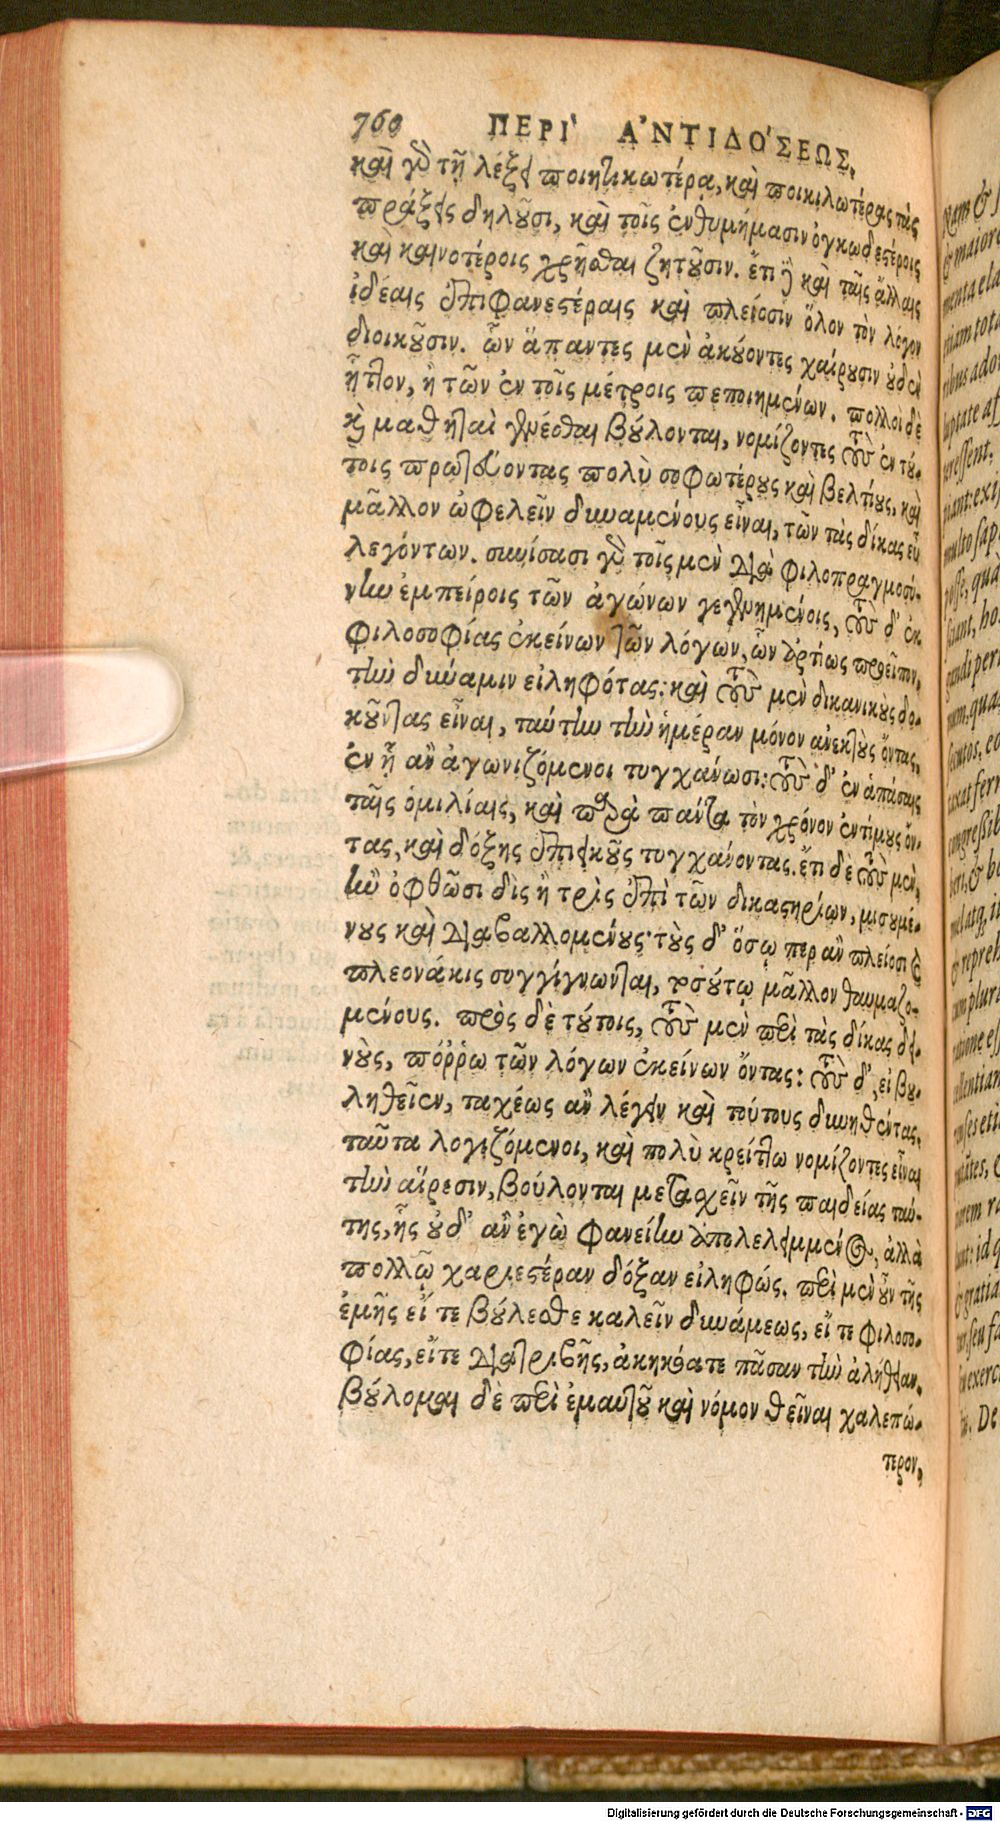 760 ΠΕΡΙ᾽ Α᾽ΝΤΙΔΟ´ΣΕΩΣ.
καὶ γδ τῇ λέξει ποιητικωτέρα, καὶ ποικιλωτέρας τὰς
πράξεις δηλοῦσι, καὶ τοῖς ἐνθυμήμασιν ὀγκωδεστέροις
καὶ καινοτέροις χρῆσθαι ζητοῦσιν. ἔτι δὲ καὶ ταῖς ἄλλαις
ἰδέαις ἐπιφανεστέραις καὶ πλείοσιν ὅλον τὸν λόγον
διοικοῦσιν. ὧν ἅπαντες μὲν ἀκούοντες χαίρουσιν οὐδὲν
ἧττον, ἢ τῶν ἐν τοῖς μέτροις πεποιημένων. πολλοὶ δὲ
καὶ μαθηταὶ γενέσθαι βούλονται, νομίζοντες τοὺς ἐν τού-
τοις πρωτεύοντας πολὺ σοφωτέρους καὶ βελτίους, καὶ
μᾶλλον ὠφελεῖν δυναμένους εἶναι, τῶν τὰς δίκας εὖ
λεγόντων. συνίσασι γὰρ τοῖς μὲν διὰ φιλοπραγμοσύ-
νην ἐμπείροις τῶν ἀγώνων γεγενημένοις, τοὺς δ᾽ ἐκ
φιλοσοφίας ἐκείνων τῶν λόγων, ὧν ἀρτίως προεῖπον,
τὴν δύναμιν εἰληφότας: καὶ τοὺς μὲν δικανικοὺς δο-
κοῦντας εἶναι, ταύτην τὴν ἡμέραν μόνον ἀνεκτοὺς ὄντας,
ἐν ᾗ ἂν ἀγωνιζόμενοι τυγχάνωσι: τοὺς δ᾽ ἐν ἁπάσαις
ταῖς ὁμιλίαις, καὶ παρὰ πάντα τὸν χρόνον ἐντίμους ὄν-
τας, καὶ δόξης ἐπιεικοῦς τυγχάνοντας. ἔτι δὲ τοὺς μὲν,
ἢν ὀφθῶσι δὶς ἢ τρὶς ἐπὶ τῶν δικαστηρίων, μισουμέ-
νους καὶ διαβαλλομένους· τοὺς δ᾽ ὅσῳ περ ἂν πλείοσι καὶ
πλεονάκις συγγίγνωνται, τοσούτῳ μᾶλλον θαυμαζο-
μένους. πρὸς δὲ τούτοις, τοὺς μὲν περὶ τὰς δίκας δει-
νοὺς, πόῤῥω τῶν λόγων ἐκείνων ὄντας: τοὺς δ᾽, εἰ βου-
ληθεῖεν, ταχέως ἂν λέγειν καὶ τούτους δυνηθέντας.
ταῦτα λογιζόμενοι, καὶ πολὺ κρείττω νομίζοντες εἶναι
τὴν αἵρεσιν, βούλονται μετασχεῖν τῆς παιδείας ταύ-
της, ἧς οὐδ᾽ ἂν ἐγὼ φανείην ἀπολελειμμένος, ἀλλὰ
πολλῷ χαριεστέραν δόξαν εἰληφώς. περὶ μὲν οὖν τῆς
ἐμῆς εἴ τε βούλεσθε καλεῖν δυνάμεως, εἴ τε φιλοσο-
φίας, εἴτε διατριβῆς, ἀκηκόατε πᾶσαν τὴν ἀλήθειαν.
βούλομαι δὲ περὶ ἐμαυτοῦ καὶ νόμον θεῖναι χαλεπώ-
τερον,
Digitalisierung gefördert durch die Deutsche Forschungsgemeinschaft - DFG